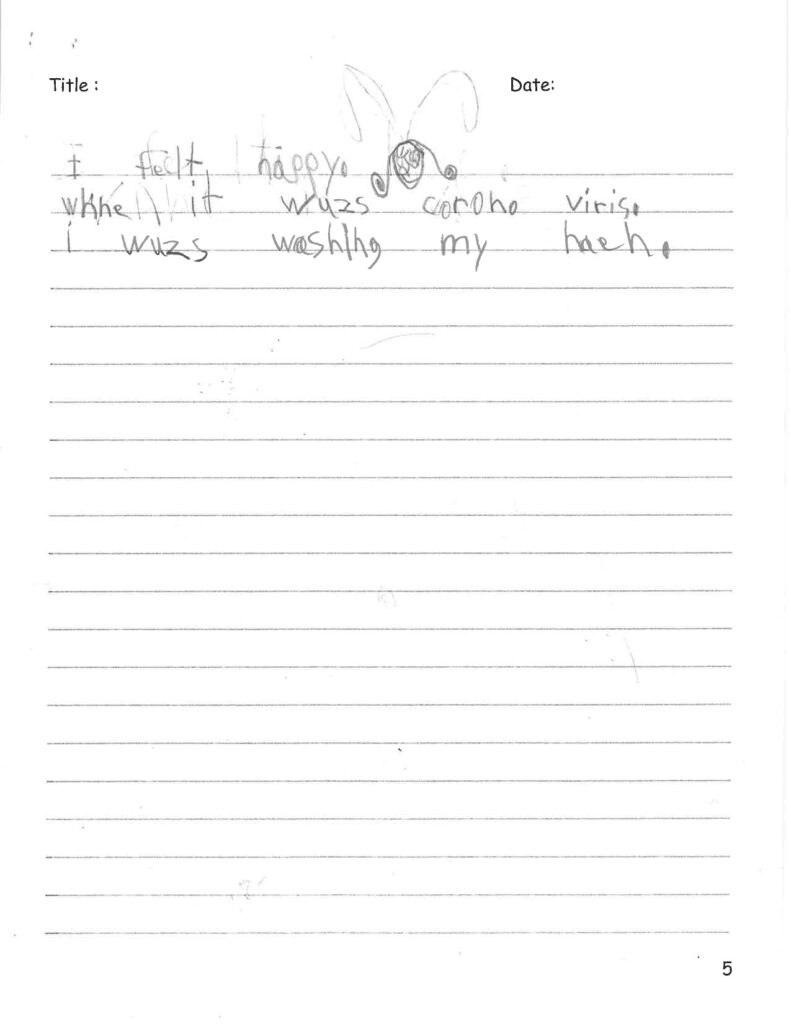 Title : Date:
I felt happy.
whhe it wuzs coroho viris.
i wuzs washihg my haeh.
5